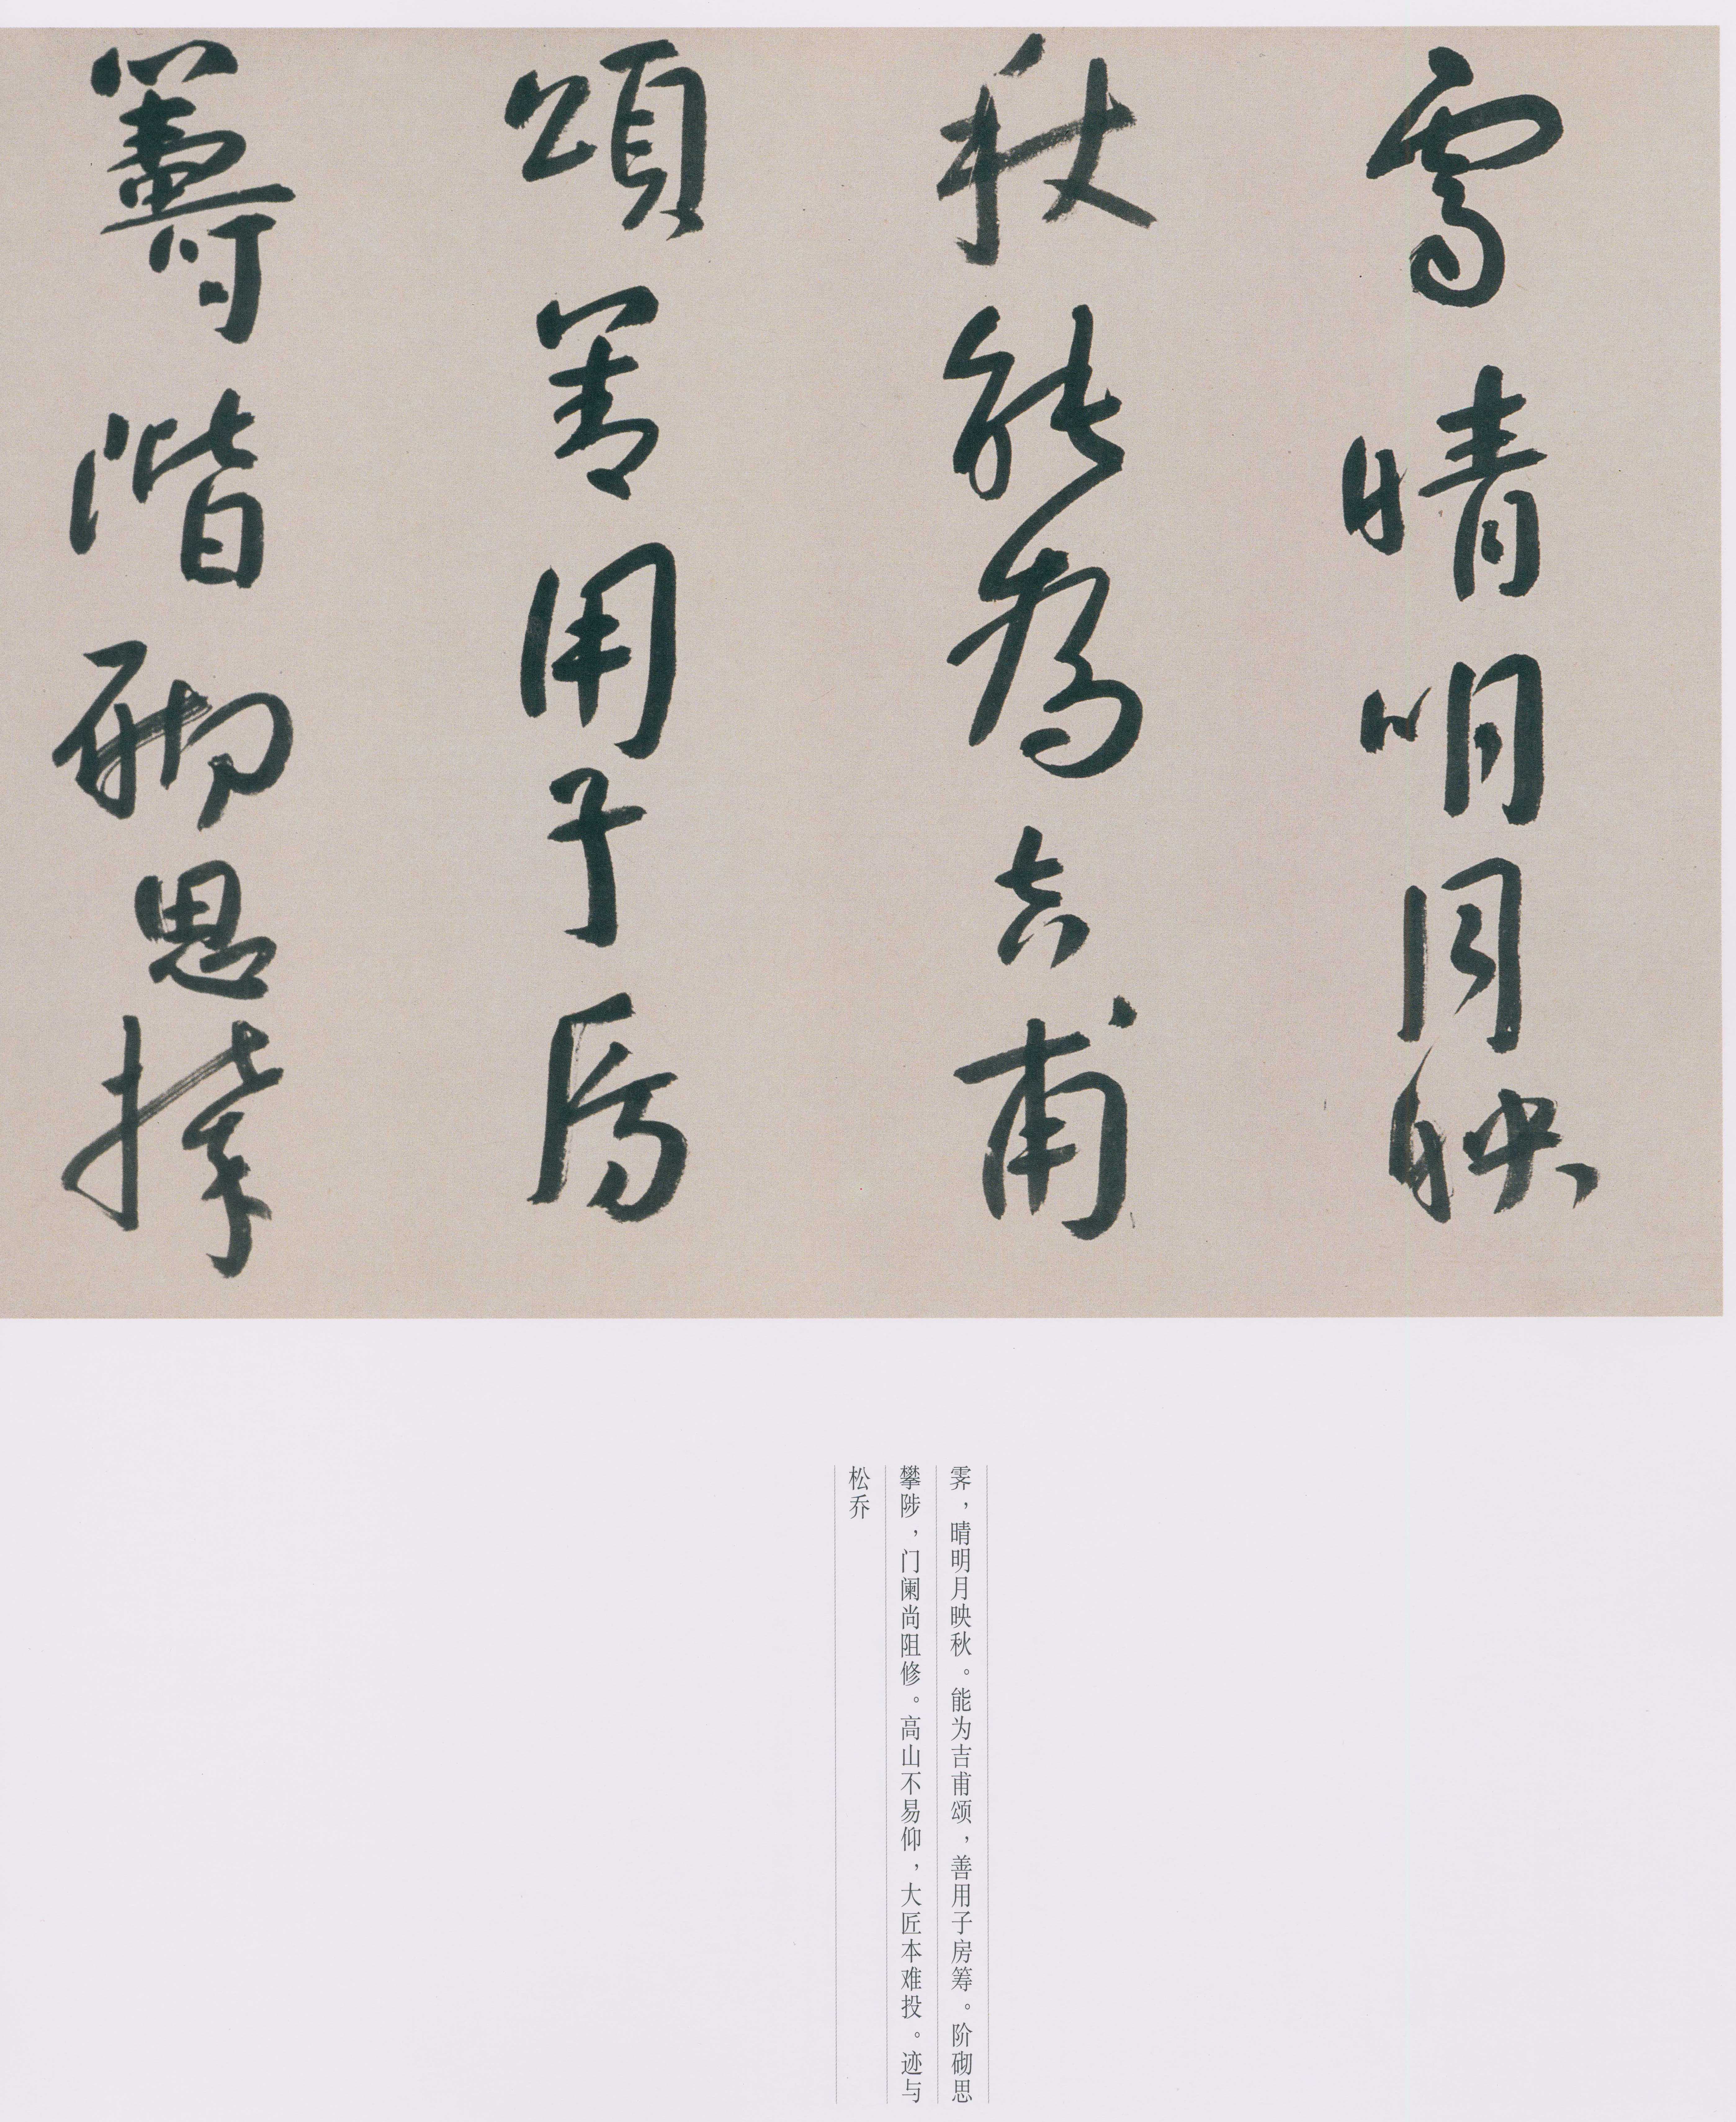 霽晴明月映
秋能為吉甫
頌善用子房
籌階砌思攀
霁，晴明月映秋。能为吉甫颂，善用子房筹。阶砌思
攀陟，门阑尚阻修。高山不易仰，大匠本难投。迹与
松乔